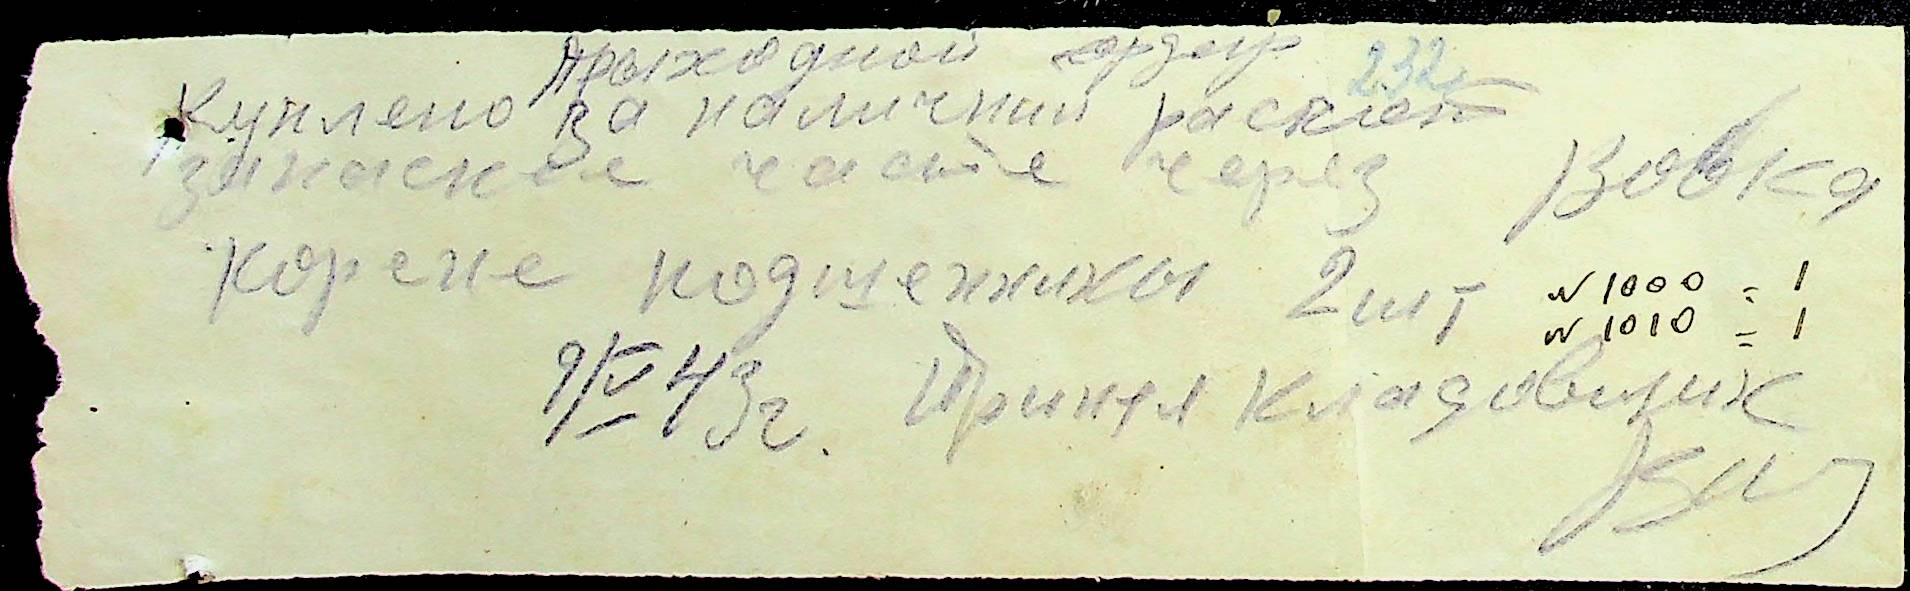 Прыходной ордер 232
Куплено за наличний расклет
запаские часте через Вовка
корене подшепники 2 шт N 1000 = 1
N 1010 = 1
9/V 43 г. Принял кладовщик